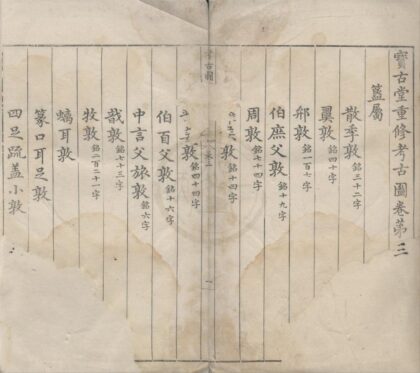 寶古堂重修考古圖卷第三
簋屬
散季敦 銘三十二字
㠱敦
䢵敦 銘一百七字
伯庶父敦 銘十九字
周敦 銘七十四字
敦 銘四十四字
考古圖
敦 銘四十四字
伯百父敦 銘十六字
中言父旅敦 銘六字
戠敦 銘七十三字
牧敦 銘二百二十一字
螭耳敦
篆口耳足敦
四足疏蓋小敦